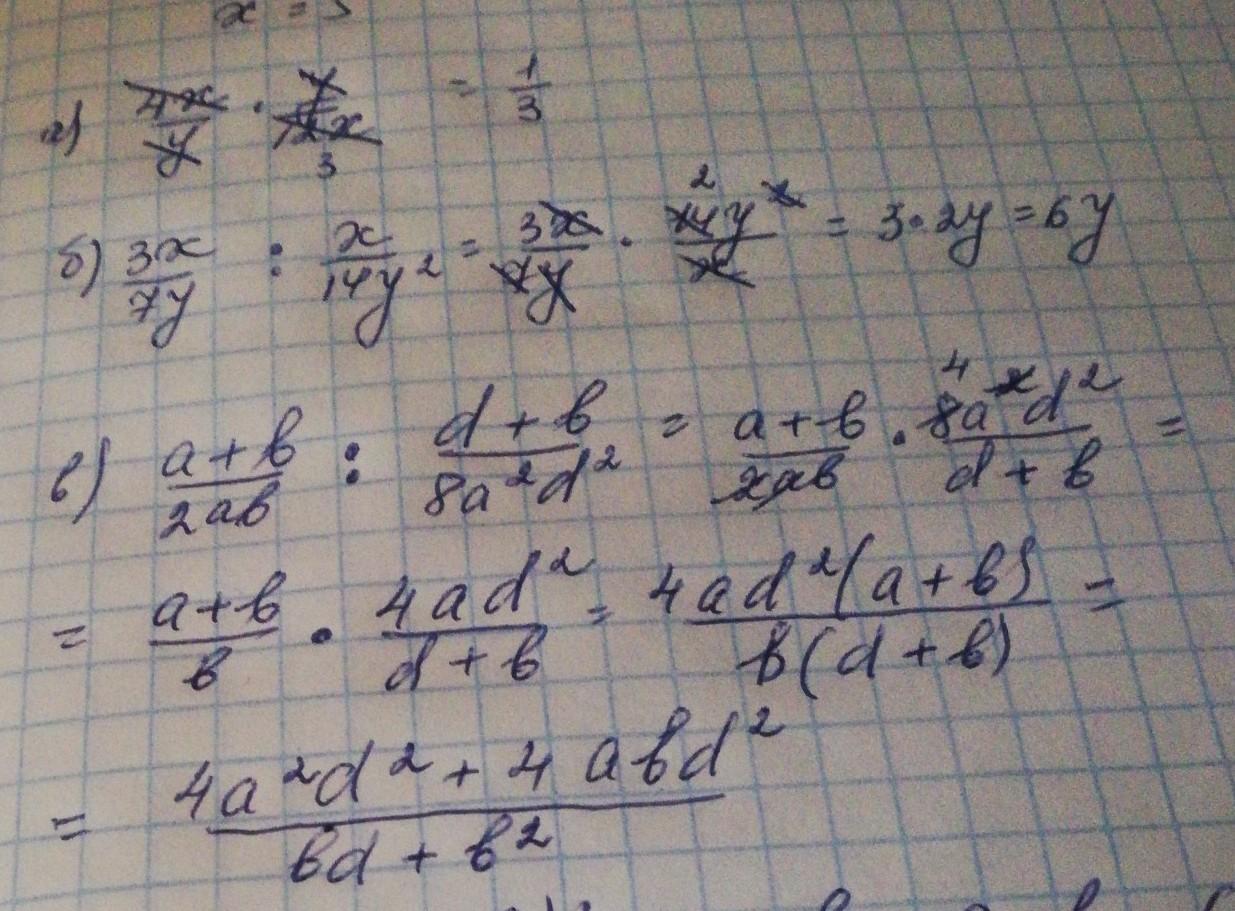 x =
а) 4x/y · y/12x = 1/3
3
б) 3x/7y : x/14y² = 3x/7y · 14y²/x = 3·2y = 6y
2
в) a+b/2ab : d+b/8a²d² = a+b/2ab · 8a²d²/d+b =
4
= a+b/b · 4ad²/d+b = 4ad²(a+b)/b(d+b) =
= 4a²d² + 4abd²/bd + b²